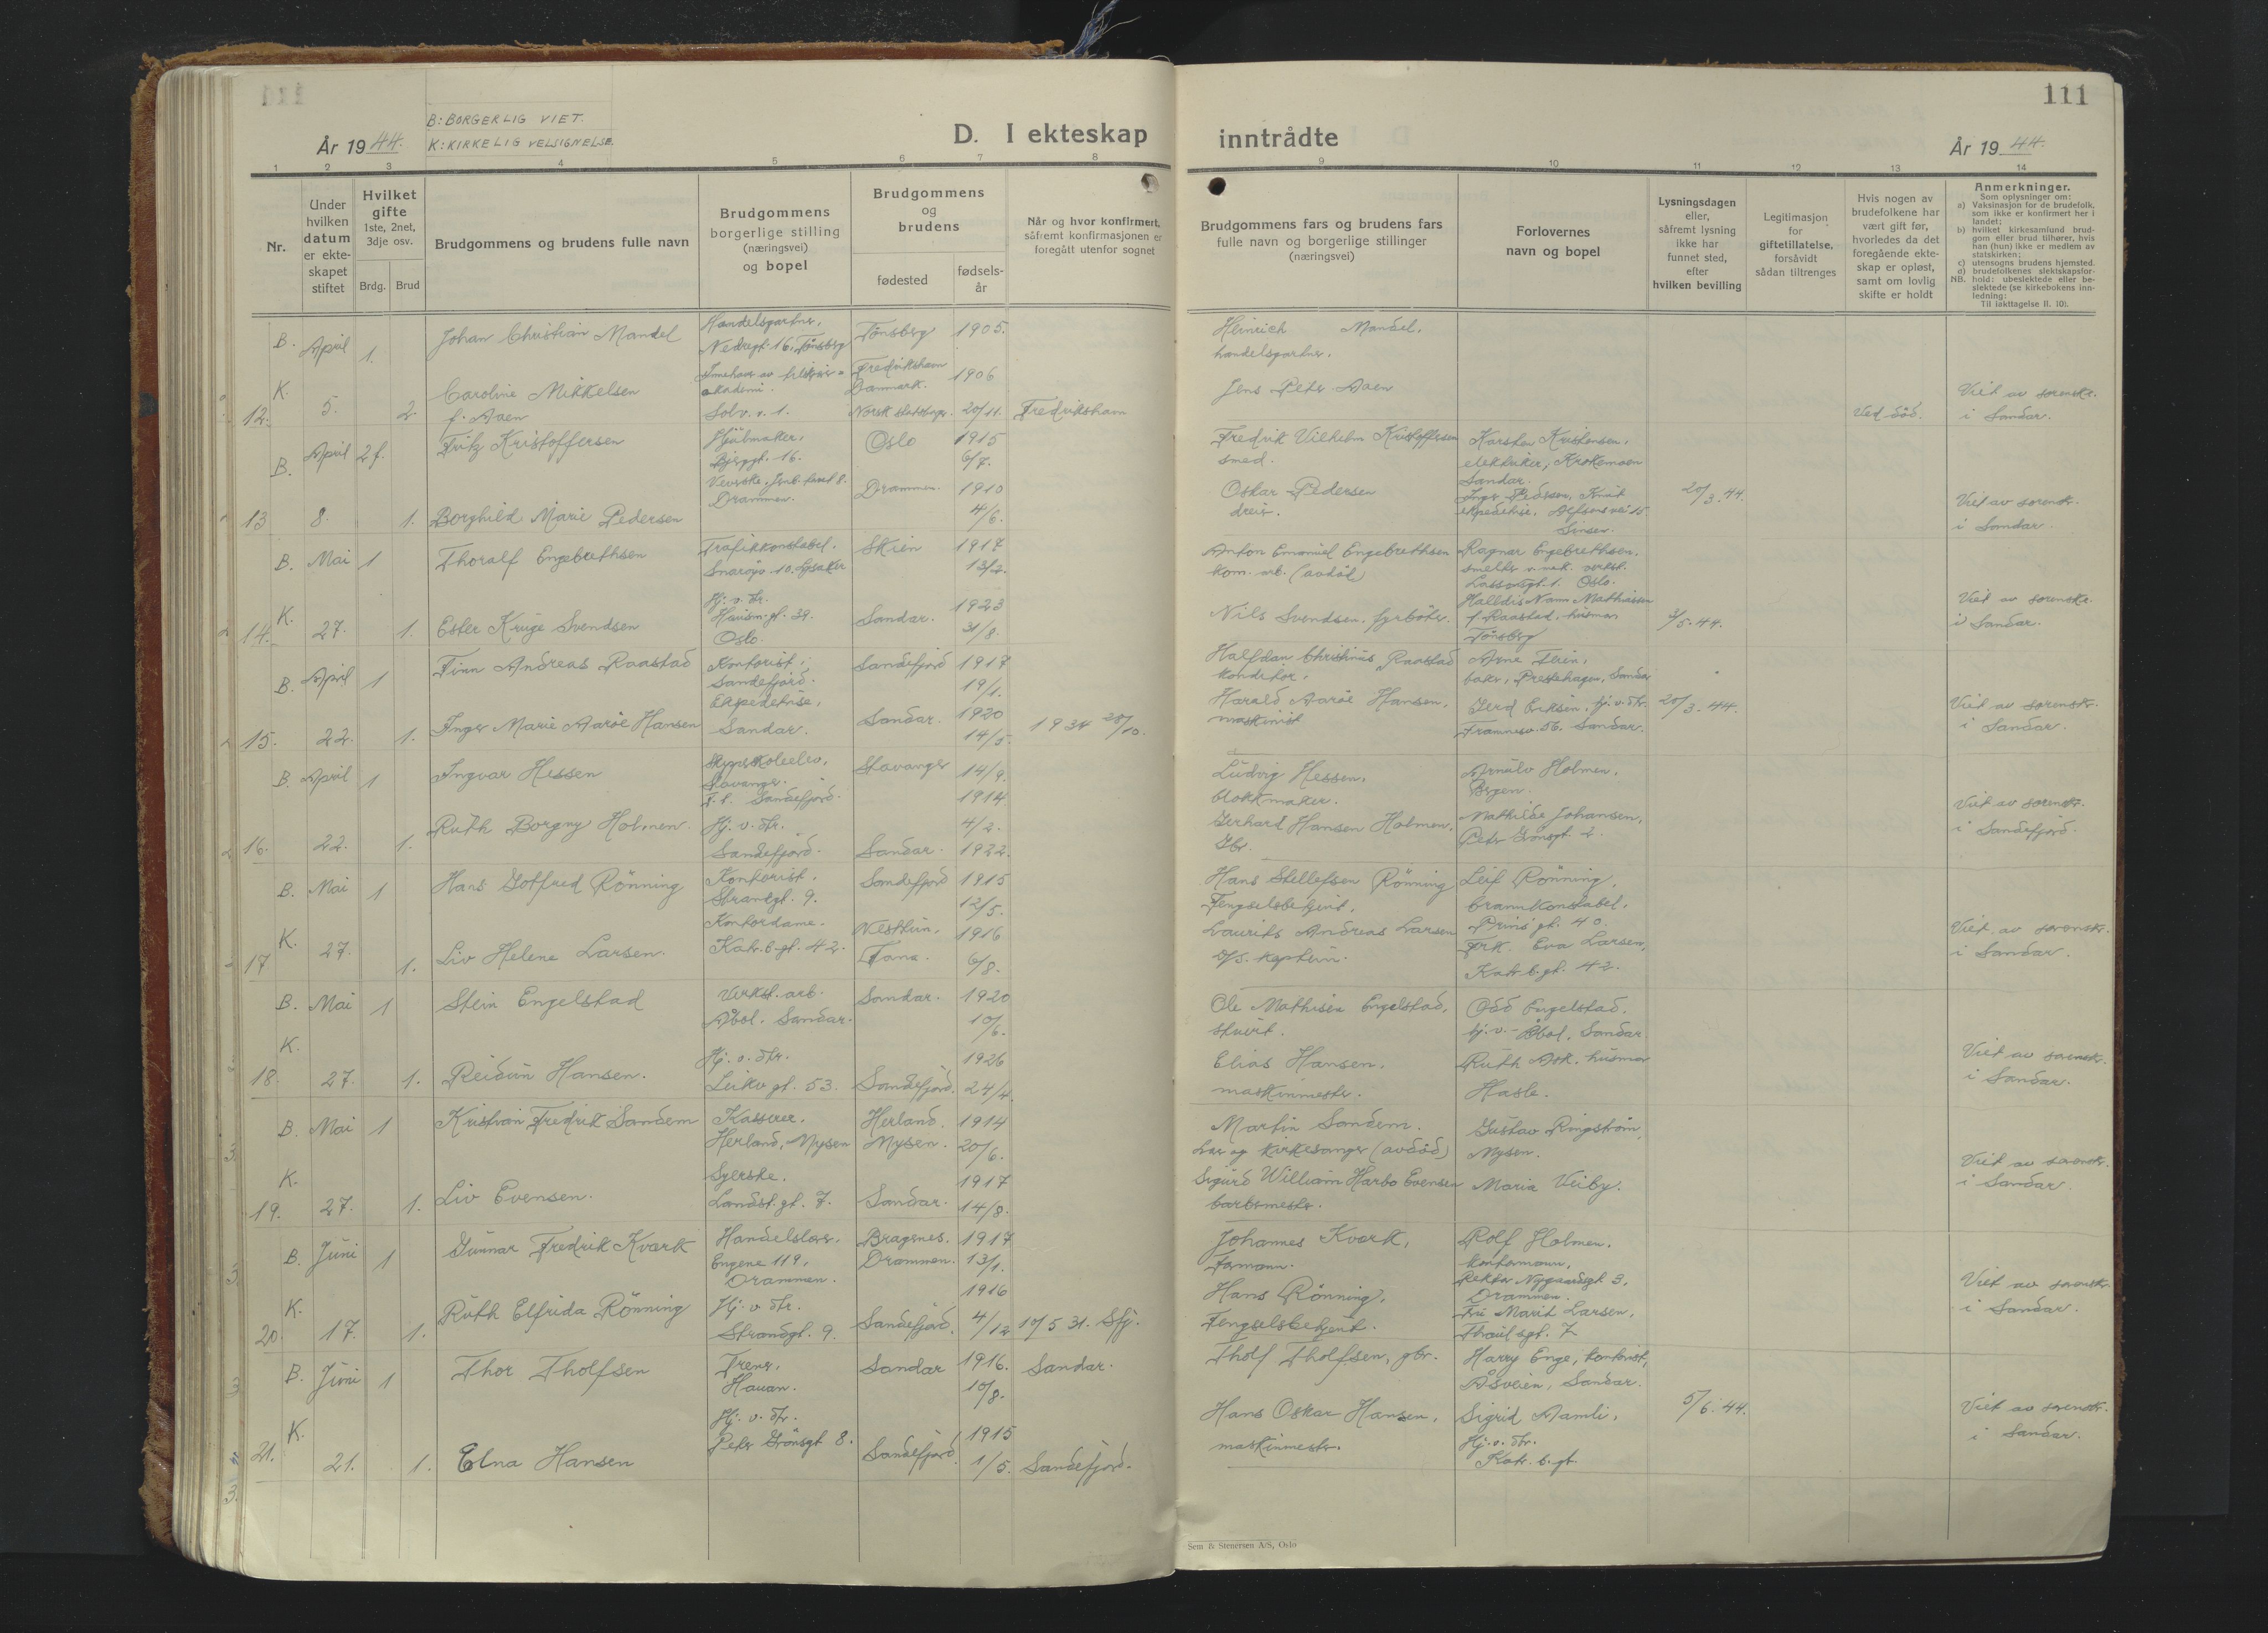 111
B: BORGERLIG VIET.
K: KIRKELIG VELSIGNELSE.
År 1944.
D. I ekteskap inntrådte
År 1944.
1 2 3 4 5 6 7 8 9 10 11 12 13 14
Nr.
Under hvilken datum er ekte-skapet stiftet
Hvilket gifte
1ste, 2net, 3dje osv.
Brdg. Brud
Brudgommens og brudens fulle navn
Brudgommens borgerlige stilling (næringsvei) og bopel
Brudgommens og brudens
fødested
fødsels-år
Når og hvor konfirmert, såfremt konfirmasjonen er foregått utenfor sognet
Brudgommens fars og brudens fars fulle navn og borgerlige stillinger (næringsvei)
Forlovernes navn og bopel
Lysningsdagen eller, såfremt lysning ikke har funnet sted, efter hvilken bevilling
Legitimasjon for giftetillatelse, forsåvidt sådan tiltrenges
Hvis nogen av brudefolkene har vært gift før, hvorledes da det foregående ekte-skap er opløst, samt om lovlig skifte er holdt
Anmerkninger.
Som oplysninger om:
a) Vaksinasjon for de brudefolk, som ikke er konfirmert her i landet;
b) hvilket kirkesamfund brud-gom eller brud tilhører, hvis han (hun) ikke er medlem av statskirken;
c) utensogns brudens hjemsted.
d) brudefolkenes slektskapsfor-hold: ubeslektede eller be-slektede (se kirkebokens inn-ledning:
NB.
Til iakttagelse II. 10).
B. April 1. Johan Christian Mandel
Handelsgartner,
Nedregt. 16, Tønsberg
Tönsberg 1905.
Heinrich Mandel.
handelsgartner.
K. 12. 5. 2. Caroline Mikkelsen
f. Aaen
Solv. v. 1.
Fredrikshavn
Danmark.
1906
20/11. Fredrikshavn
Jens Peter Aaen
Ved död.
Viet av sorenskr.
i Sandar.
B. April 2f. Fritz Kristoffersen
Hjulmaker,
Bjerggt. 16.
Oslo 1915
6/7.
Fredrik Vilhelm Kristoffersen
smed.
Karsten Kristensen,
elektriker, Krokemoen
Sandar.
13 8. 1. Borghild Marie Pedersen
Drammen.
Drammen. 1910
4/6.
Oskar Pedersen
dreier.
Inger Pedersen,
Sinsen.
20/3.44.
Viet av sorenskr.
i Sandar.
B. Mai 1 Thoralf Engebrethsen
Trafikkonstabel.
Snaröya 10. Lysaker
Skien 1917
13/2.
Anton Emaniel Engebrethsen
kom. arb. (avdöd)
Ragnar Engebrethsen.
Oslo.
K. 14. 27. 1. Ester Kruge Svendsen
Hj. v. dtr.
Oslo.
Sandar. 1923
31/8.
Nils Svendsen. fyrböter.
f. Raastad. husmor
Tönsberg
3/5.44.
Viet av sorenskr.
i Sandar.
B. April 1 Finn Andreas Raastad
Kontorist,
Sandefjord.
Sandefjord 1917
19/1.
Halfdan Christinus Raastad
konditor,
Arne Fevin,
baker, Prestehagen, Sandar
15. 22. 1. Inger Marie Aaröe Hansen
Ekspeditrise,
Sandar.
Sandar. 1920
14/5.
1934 28/10.
Harald Aaröe Hansen,
maskinist
Gerd Eriksen, hj. v. dtr.
Framnesv. 56. Sandar.
20/3.44.
Viet av sorenskr.
i Sandar.
B. April 1 Ingvar Hessen
Skipperskoleelev,
Stavanger.
F.t. Sandefjord.
Stavanger 14/9.
1914
Ludvig Hessen.
blokkmaker.
Arnulv Holmen.
Bergen.
16. 22. 1. Ruth Borgny Holmen.
Hj. v. dtr.
Sandefjord.
Sandar. 4/2.
1922.
Gerhard Hansen Holmen.
Gbr.
Mathilde Johansen,
Peter Grönsgt. 2.
Viet av sorenskr.
i Sandefjord.
B. Mai 1 Hans Gotfred Rönning
Kontorist.
Strandgt. 9.
Sandefjord 1915
12/5.
Hans Stellefsen Rönning
Fengselsbetjent,
Leif Rönning,
brannkonstabel,
Prins' gt. 40.
K. 17 27. 1. Liv Helene Larsen.
Kontordame.
Katr. b. gt. 42.
Nesttun,
Fana.
1916
6/8.
Laurits Andreas Larsen
Frk. Eva Larsen,
Katr. b. gt. 42.
Viet av sorenskr.
i Sandar.
B. Mai 1 Stein Engelstad
Verkst. arb.
Åbol. Sandar.
Sandar. 1920
10/6.
Ole Mathisen Engelstad,
stuert.
Odd Engelstad.
Åbol, Sandar
K. 18. 27. 1. Reidun Hansen.
Hj. v. dtr.
Leikv. gt. 53.
Sandefjord. 1926
24/4.
Elias Hansen.
maskinmester.
Ruth Ask. husmor
Hasle.
Viet av sorenskr.
i Sandar.
B. Mai 1 Kristian Fredrik Sandem
Kasserer.
Herland, Mysen
Herland.
Mysen.
1914
20/6.
Martin Sandem.
Lær og kirkesanger (avdöd)
Gustav Ringström,
Mysen.
K. 19. 27. 1. Liv Evensen.
Syerske.
Landst. gt. 7.
Sandar. 1917
14/8.
Sigurd William Harbo Evensen
barbermester.
Maria Veiby.
Viet av sorenskr.
i Sandar.
B. Juni 1 Gunnar Fredrik Kværk
Handelslærer.
Engene 119,
Drammen.
Bragernes.
Drammen.
1917
13/1.
Johannes Kværk,
Formann.
Rolf Holmen.
kontormann,
Rektor Nygaardsgt 3.
Drammen.
K. 20. 17. 1. Ruth Elfrida Rönning
Hj. v. dtr.
Strandgt. 9.
Sandefjord. 1916
4/12
10/5 31. Sfj.
Hans Rönning.
Fengselsbetjent.
Fru Marit Larsen,
Thaulsgt. 7
Viet av sorenskr.
i Sandar.
B. Juni 1 Thor Tholfsen
Trener,
Hauan.
Sandar 1916.
10/8.
Sandar.
Tholf Tholfsen, gbr.
Harry Enge, kontorist,
Åsveien, Sandar.
K. 21. 21. 1. Elna Hansen
Hj. v. dtr.
Peter Grönsgt 8.
Sandefjord. 1915
1/5.
Sandefjord.
Hans Oskar Hansen,
maskinmester.
Sigrid Aamli,
Hj. v. dtr.
Katr. b. gt.
5/6.44.
Viet av sorenskr.
i Sandar.
Sem & Stenersen A/S, Oslo